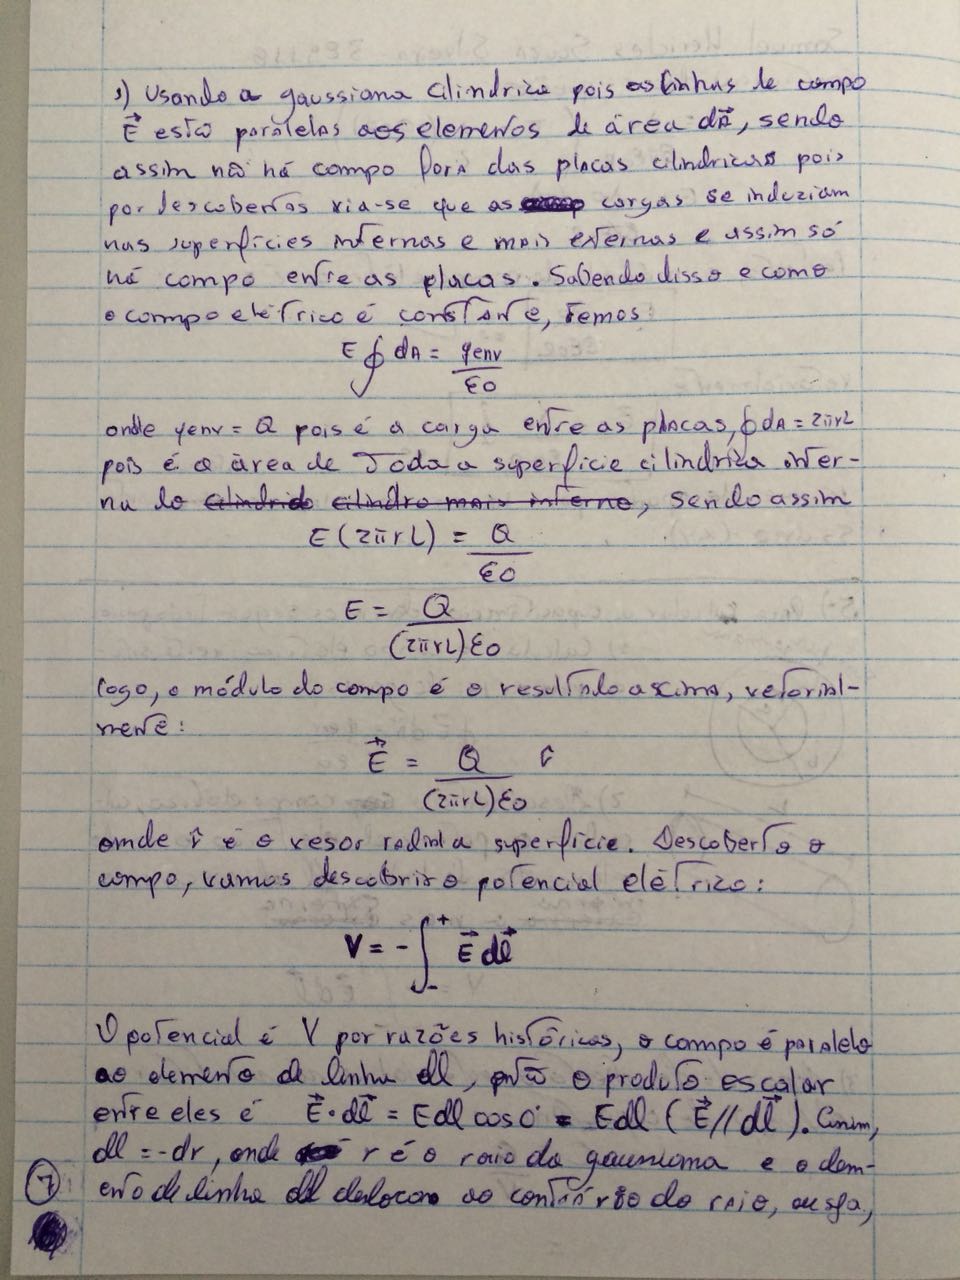 1) Usando a gaussiana cilindrica pois as linhas de campo
E⃗ estão paralelas aos elementos de área dA⃗, sendo
assim não há campo fora das placas cilindricas pois
por descobertas via-se que as cargas se induziam
nas superfícies internas e mais externas e assim só
há campo entre as placas. Sabendo disso e como
o campo elétrico é constante, temos:
E ∮ dA = qenv / ε0
onde qenv = Q pois é a carga entre as placas, ∮ dA = 2πrL
pois é a área de toda a superfície cilindrica inter-
na do cilindrido cilindro mais interno, sendo assim
E (2πrL) = Q / ε0
E = Q / (2πrL)ε0
logo, o módulo do campo é o resultado acima, vetorial-
mente:
E⃗ = Q / (2πrL)ε0 r̂
onde r̂ é o vesor radial a superfície. Descoberto o
campo, vamos descobrir o potencial elétrico:
V = - ∫₋⁺ E⃗ dl⃗
O potencial é V por razões históricas, o campo é paralelo
ao elemento de linha dl, então o produto escalar
entre eles é E⃗ · dl⃗ = Edl cos 0° = Edl (E⃗ // dl⃗). Assim,
dl = -dr, onde r é o raio da gaussiana e o elem-
ento de linha dl deslocam ao contrário do raio, ou seja,
7